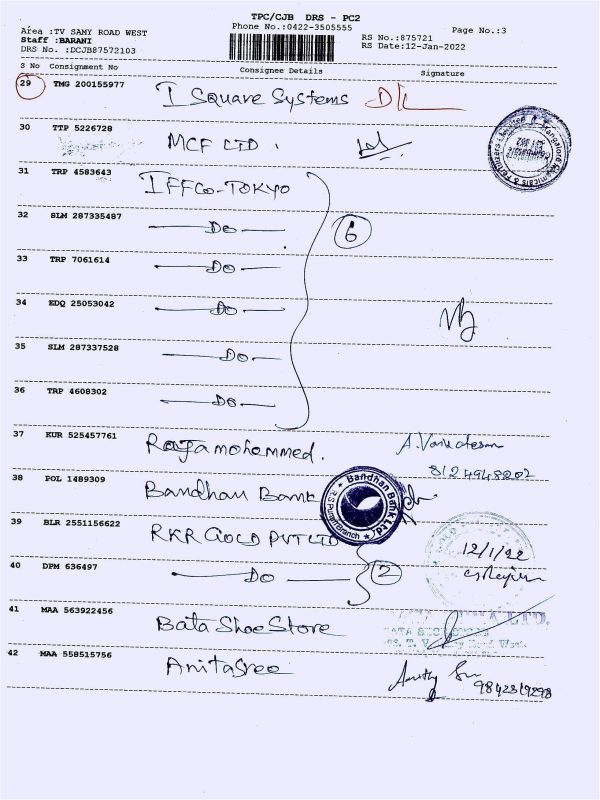 TPC/CJB DRS - PC2
Phone No.:0422-3505555
Page No.:3
Area :TV SAMY ROAD WEST
Staff :BARANI
DRS No. :DCJB87572103
RS No.:875721
RS Date:12-Jan-2022
S No Consignment No Consignee Details Signature
29 TMG 200155977 I Square Systems D/L
30 TTP 5226728 MCF LTD.
31 TRP 4583643 IFFCO-TOKYO
32 SLM 287335487 Do
6
33 TRP 7061614 Do
34 EDQ 25053042 Do
35 SLM 287337528 Do
36 TRP 4608302 Do
37 KUR 525457761 Rajamohammed. A. Venkatesan
8124948202
38 POL 1489309 Bandhan Bank
Bandhan Bank Ltd
R.S. Puram Branch
39 BLR 2551156622 RKR GOLD PVT LTD
12/1/22
40 DPM 636497 Do 2
41 MAA 563922456 Bata Shoe Store
42 MAA 558515756 Anitasree
9842319298